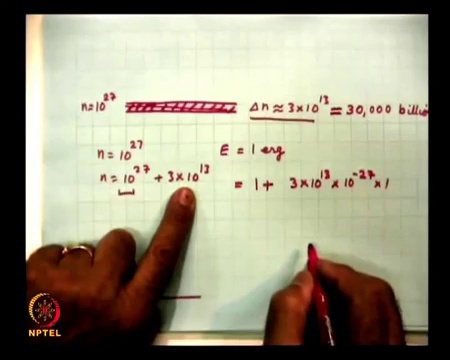 n=10²⁷ Δn ≈ 3×10¹³ = 30,000 billion
n = 10²⁷ E = 1 erg
n = 10²⁷ + 3×10¹³ = 1 + 3×10¹³ × 10⁻²⁷ × 1
NPTEL